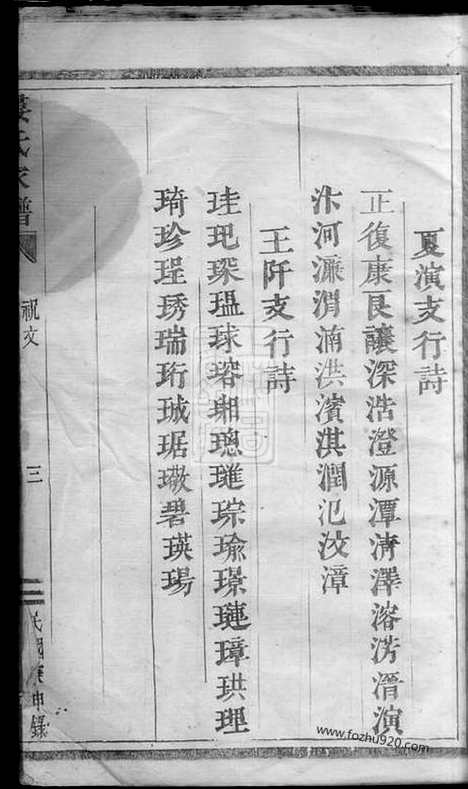 夏演支行詩
正復康艮讓深浩澄源潭清澤溶滂潛演
汴河濂渭湳洪濱淇潤氾汶漳
王阡支行詩
珪玘琛瑥球瑢瑚璁璡琮瑜璟璉璋珙理
琦珍珵琇瑞珩珹琚璥碧瑛瑒
氏家譜
祝文
三
民國庚申錄
www.fozhu920.com